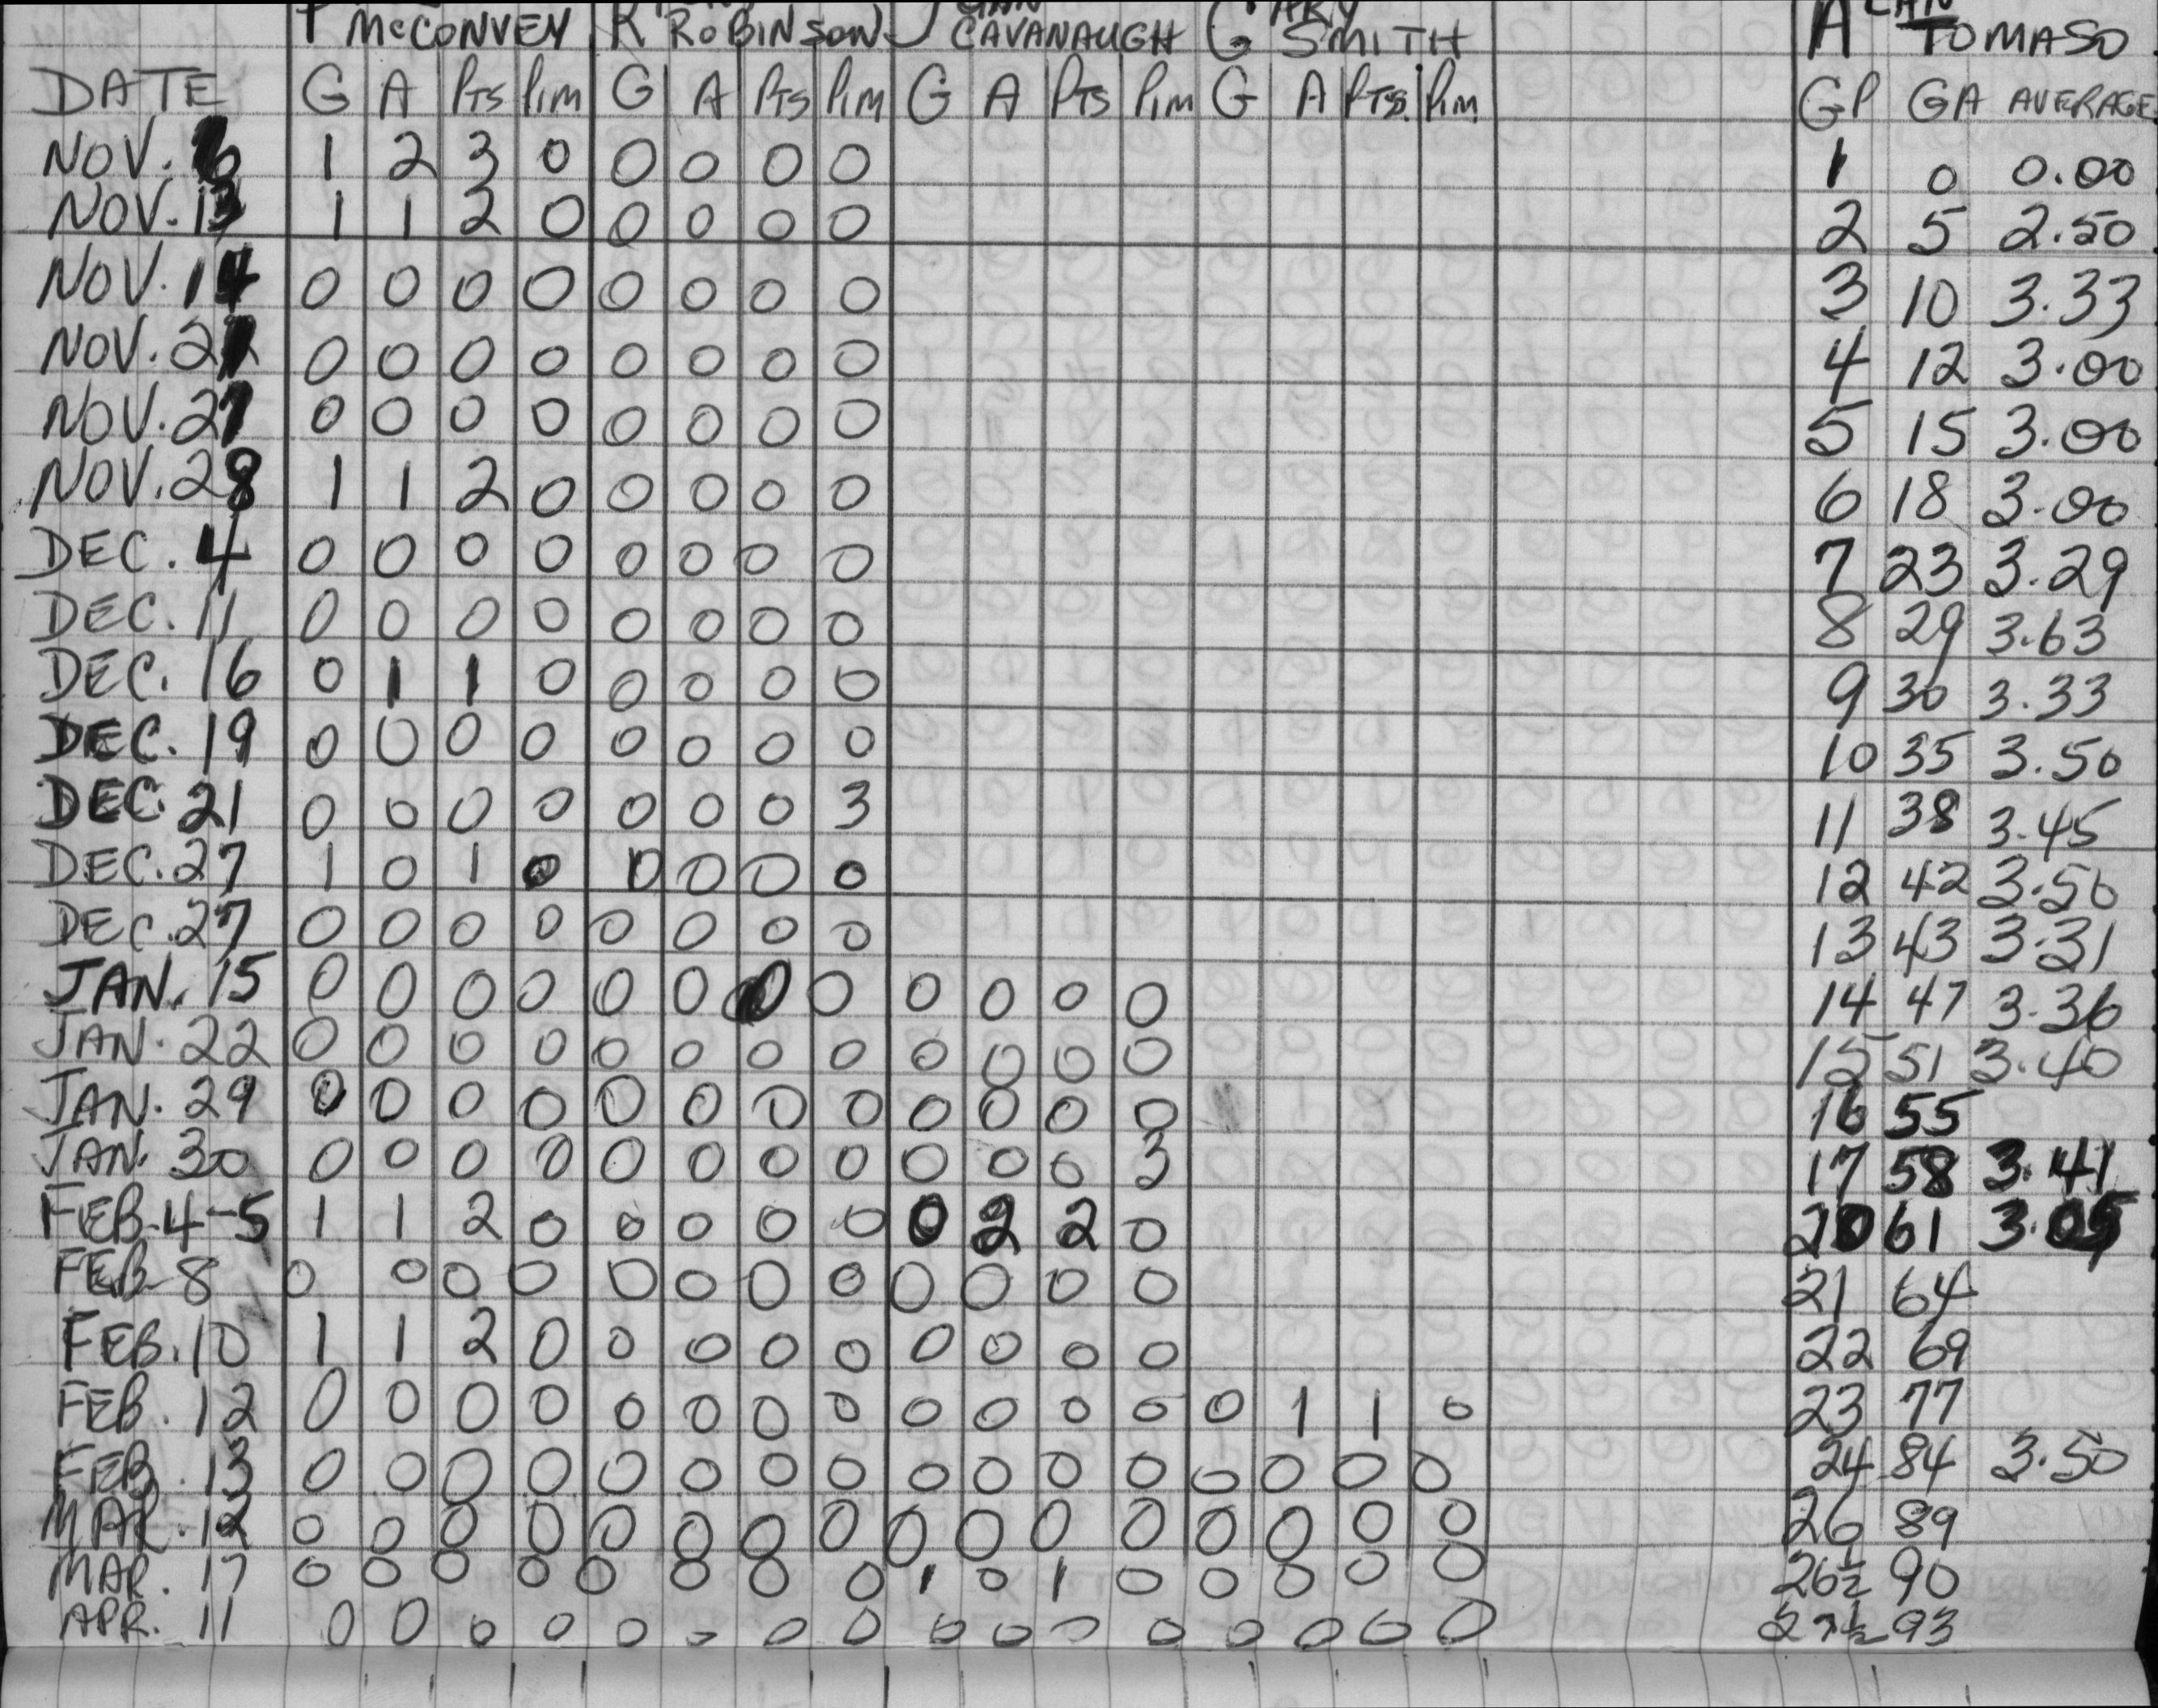 McCONVEY ROBINSON CAVANAUGH G SMITH A TOMASO
DATE G A PTS PIM G A PTS PIM G A PTS PIM G A PTS. PIM GP GA AVERAGE
NOV. 6 1 2 3 0 0 0 0 0 1 0 0.00
NOV. 13 1 1 2 0 0 0 0 0 2 5 2.50
NOV. 14 0 0 0 0 0 0 0 0 3 10 3.33
NOV. 0 0 0 0 0 0 0 0 4 12 3.00
NOV. 27 0 0 0 0 0 0 0 0 5 15 3.00
NOV. 28 1 1 2 0 0 0 0 0 6 18 3.00
DEC. 4 0 0 0 0 0 0 0 0 7 23 3.29
DEC. 11 0 0 0 0 0 0 0 0 8 29 3.63
DEC. 16 0 1 1 0 0 0 0 0 9 30 3.33
DEC. 19 0 0 0 0 0 0 0 0 10 35 3.50
DEC. 21 0 0 0 0 0 0 0 3 11 38 3.45
DEC. 27 1 0 1 0 0 0 0 0 12 42 3.50
DEC. 27 0 0 0 0 0 0 0 0 13 43 3.31
JAN. 15 0 0 0 0 0 0 0 0 0 0 0 0 14 47 3.36
JAN. 22 0 0 0 0 0 0 0 0 0 0 0 0 15 51 3.40
JAN. 29 0 0 0 0 0 0 0 0 0 0 0 0 16 55
JAN. 30 0 0 0 0 0 0 0 0 0 0 0 3 17 58 3.41
FEB-4-5 1 1 2 0 0 0 0 0 0 2 2 0 20 61 3.05
FEB-8 0 0 0 0 0 0 0 0 0 0 0 0 21 64
FEB. 10 1 1 2 0 0 0 0 0 0 0 0 0 22 69
FEB. 12 0 0 0 0 0 0 0 0 0 0 0 0 0 1 1 0 23 77
FEB. 13 0 0 0 0 0 0 0 0 0 0 0 0 0 0 0 0 24 84 3.50
MAR. 12 0 0 0 0 0 0 0 0 0 0 0 0 0 0 0 0 26 89
MAR. 17 0 0 0 0 0 0 0 0 1 0 1 0 0 0 0 0 26½ 90
APR. 11 0 0 0 0 0 0 0 0 0 0 0 0 0 0 0 0 27½ 93